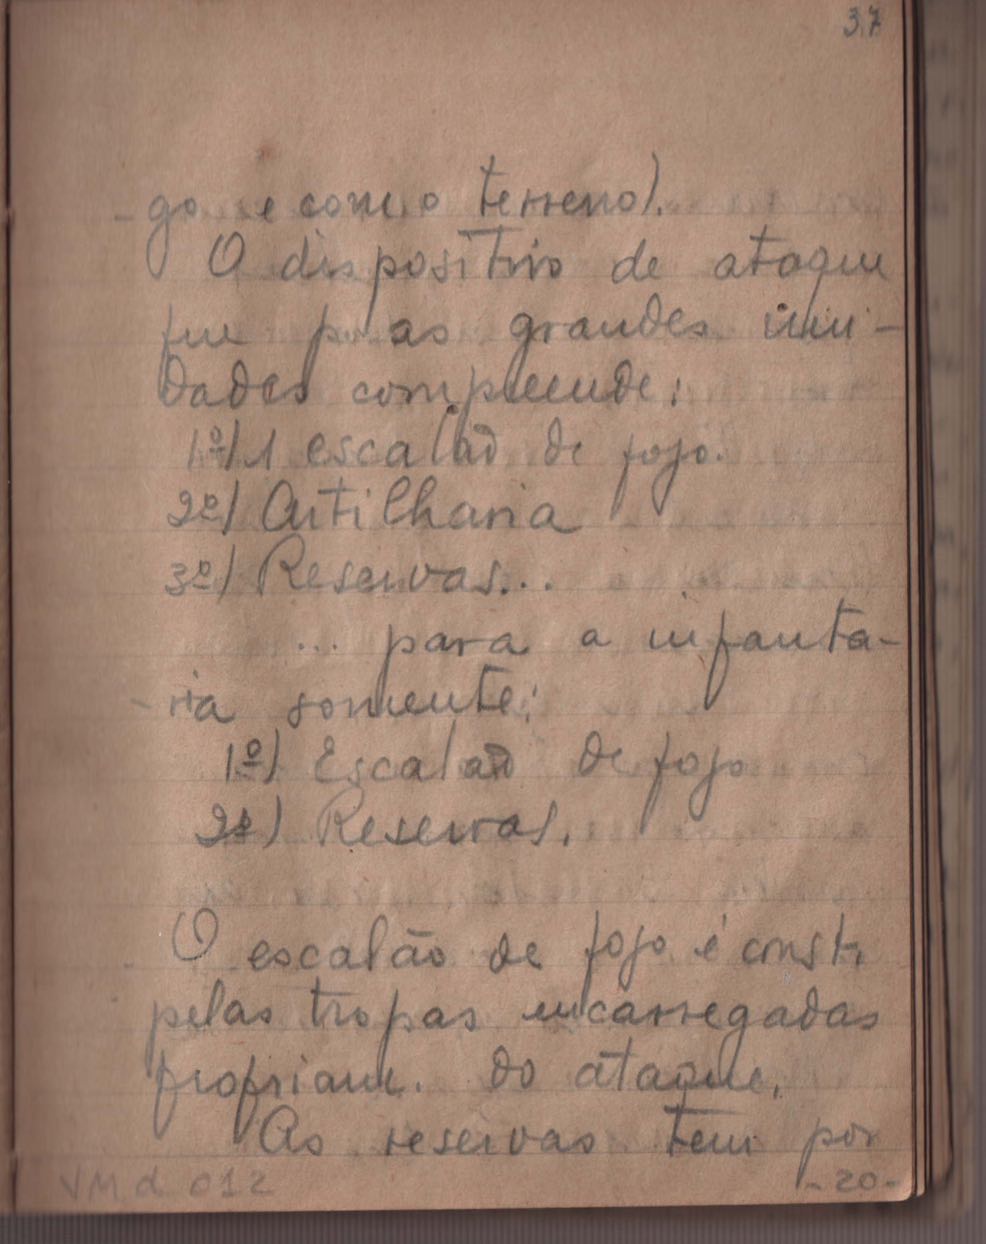 37
- go e com o terreno).
O dispositivo de ataque
que p. as grandes uni-
dades compreende:
1º) 1 escalaõ de fogo.
2º) Artilharia
3º) Reservas...
... para a infanta-
- ria somente:
1º) Escalaõ de fogo
2º) Reservas.
O escalão de fogo é const.
pelas tropas encarregadas
propriam. do ataque.
As reservas tem por
VMd 012
- 20 -